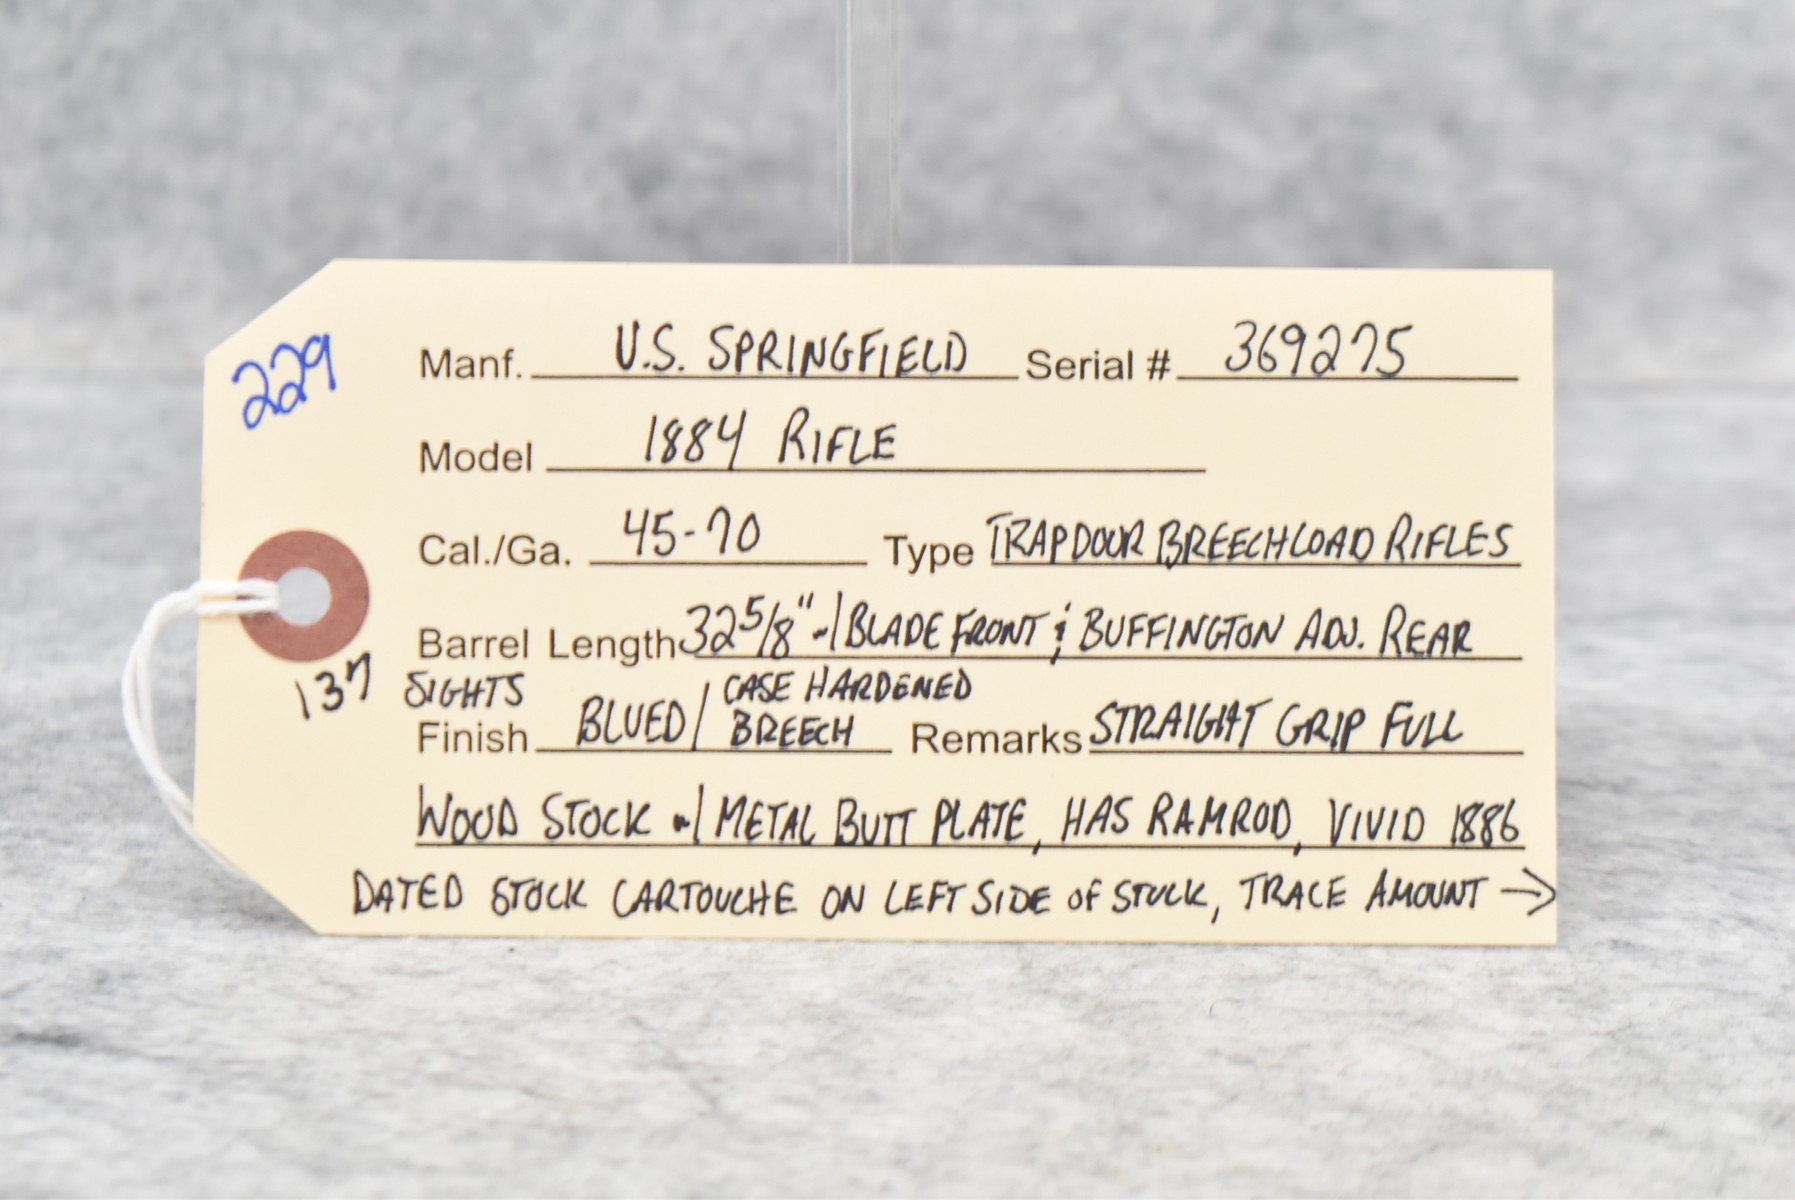 229
Manf. U.S. SPRINGFIELD Serial # 369275
Model 1884 RIFLE
Cal./Ga. 45-70 Type TRAPDOUR BREECHLOAD RIFLES
Barrel Length 32 5/8" w/ BLADE FRONT & BUFFINGTON ADJ. REAR
137 SIGHTS
Finish BLUED / CASE HARDENED BREECH Remarks STRAIGHT GRIP FULL
WOOD STOCK w/ METAL BUTT PLATE, HAS RAMROD, VIVID 1886
DATED STOCK CARTOUCHE ON LEFT SIDE OF STOCK, TRACE AMOUNT →